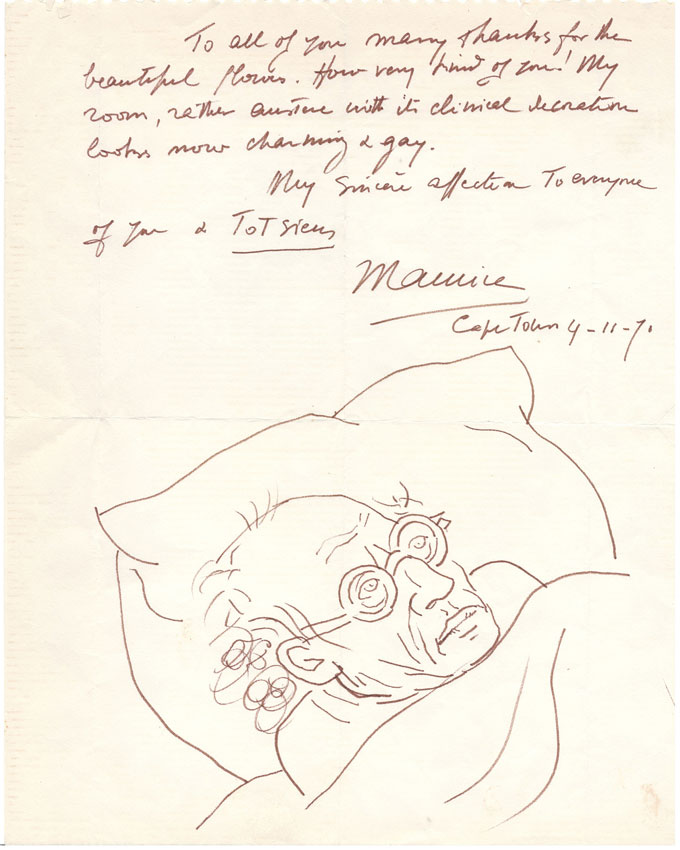 To all of you many thanks for the
beautiful flowers. How very kind of you! My
room, rather austere with its clinical decoration
looks now charming & gay.
My sincère affection To everyone
of you & ToT siens
Maurice
Cape Town 4-11-70